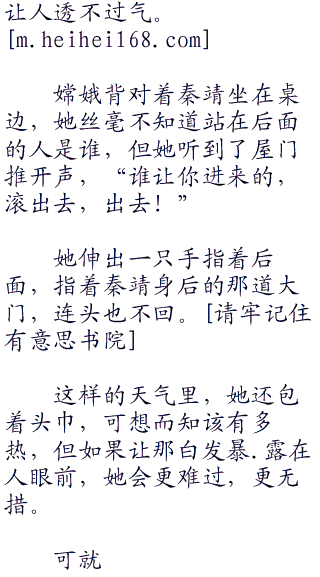 让人透不过气。
[m.heihei168.com]
嫦娥背对着秦靖坐在桌
边，她丝毫不知道站在后面
的人是谁，但她听到了屋门
推开声，“谁让你进来的，
滚出去，出去！”
她伸出一只手指着后
面，指着秦靖身后的那道大
门，连头也不回。[请牢记住
有意思书院]
这样的天气里，她还包
着头巾，可想而知该有多
热，但如果让那白发暴.露在
人眼前，她会更难过，更无
措。
可就